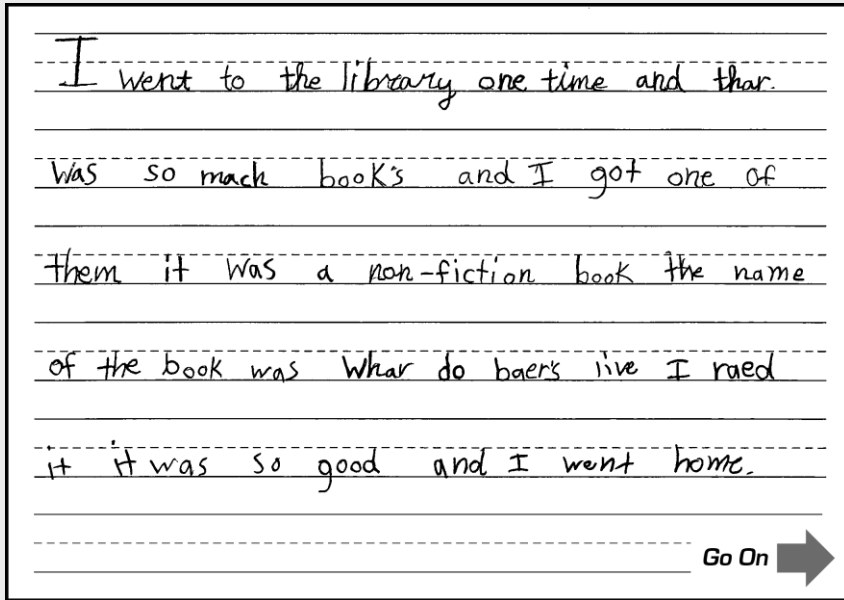 I went to the library one time and thar.
was so mach book's and I got one of
them it was a non-fiction book the name
of the book was Whar do baer's live I raed
it it was so good and I went home.
Go On